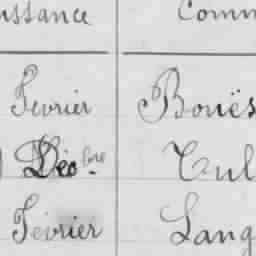 issance Comm
Fevrier Bouës
Déc.bre Tul
Février Lang